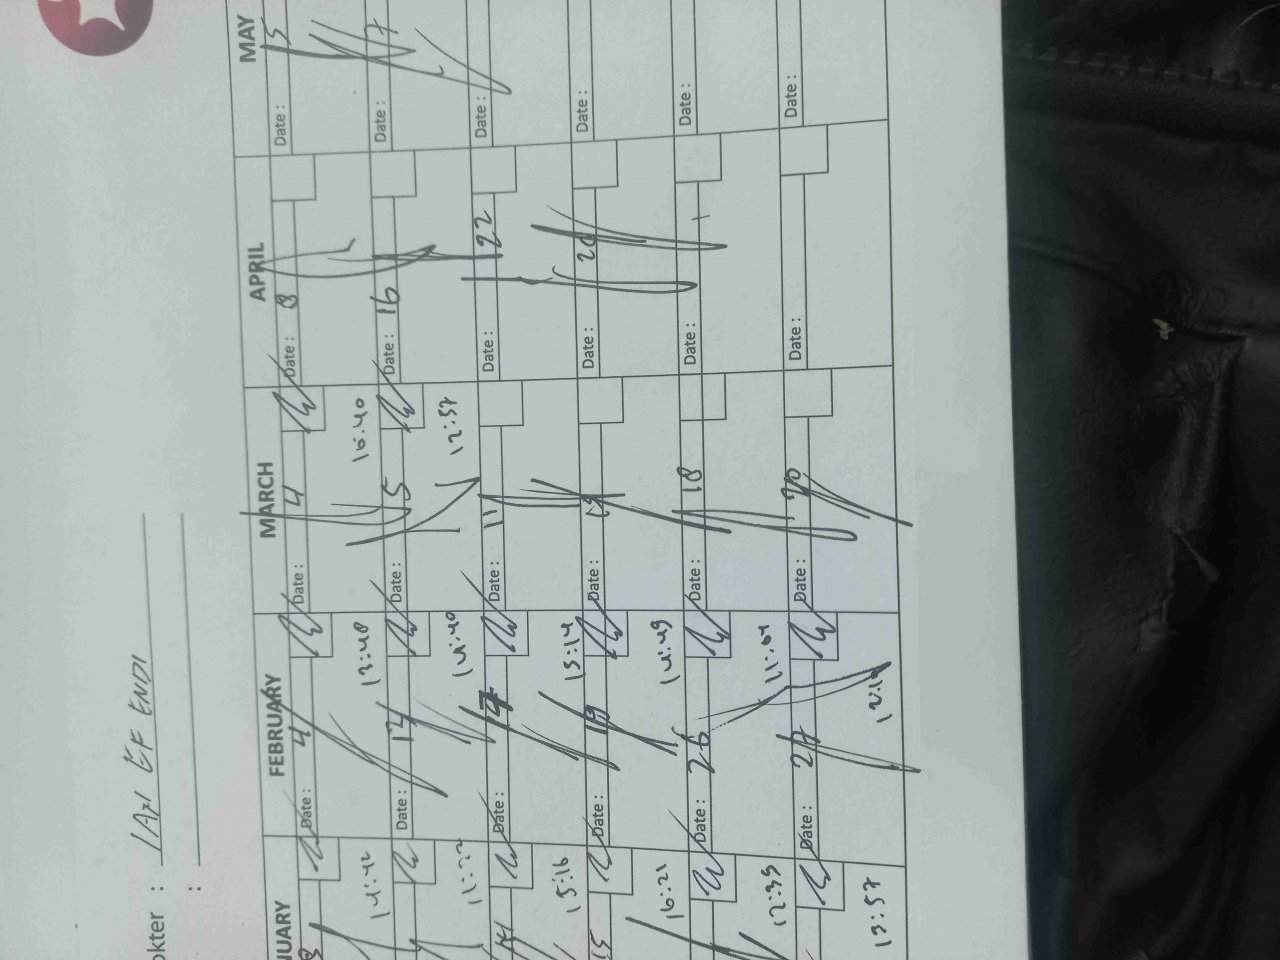 okter : IAN EFENDI
:
NUARY FEBRUARY MARCH APRIL MAY
8 Date : 4 Date : 4 Date : 8 Date : 5
14:42 13:48 16:40
Date : 13 Date : 5 Date : 16 Date : 7
11:22 14:40 12:57
Date : 17 Date : 11 Date : 22 Date :
15:16 15:14
15 Date : 19 Date : Date : Date :
16:21 14:49
Date : 26 Date : 18 Date : Date :
12:39 11:04
Date : 27 Date : 20 Date : Date :
13:57